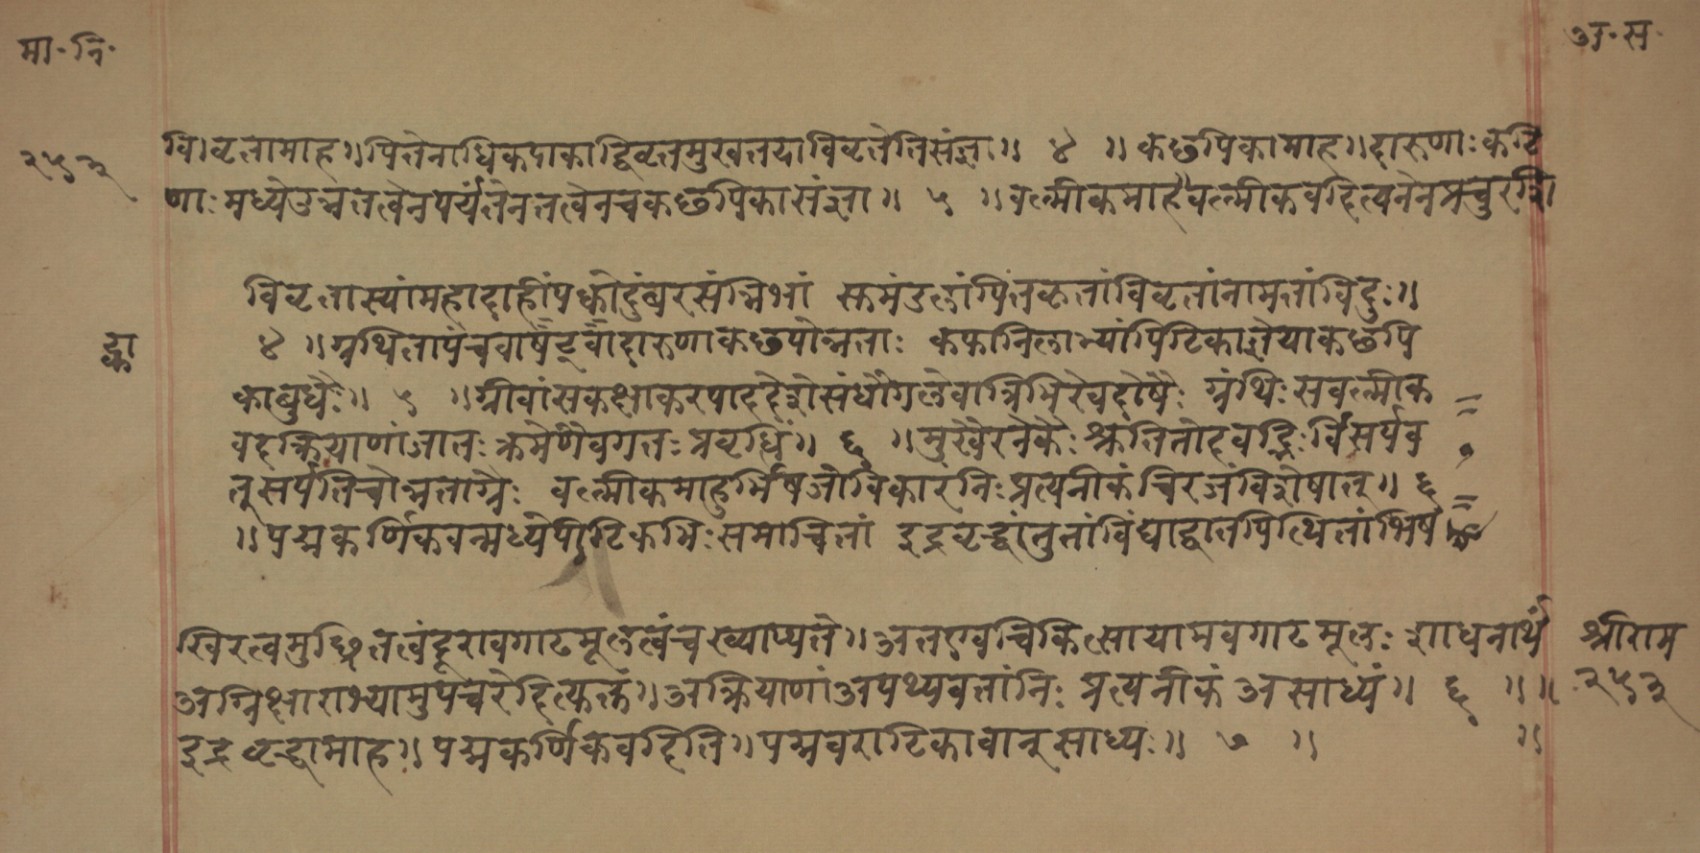 मा॰ नि॰
अ॰ स॰
२५३
वि।वृतामाह॥पित्तेनाधिकपाकाद्विवृतमुखतयाविवृतेतिसंज्ञा॥ ४ ॥कछपिकामाह॥दारुणाःकठि
णाःमध्येउन्नतत्वेनपर्यंतेनतत्वेनचकछपिकासंज्ञा॥ ५ ॥वल्मीकमाहवल्मीकवदित्यनेनप्रचुरशि
विवृतास्यांमहादाहींपक्वोदुंबरसंन्निभां समंडलांपित्तकृतांविवृतांनामतांविदुः॥
४ ॥ग्रथितापंचवाषट्वादारुणाकछपोन्नताः कफानिलाभ्यांपिटिकाज्ञेयाकछपि
काबुधैः॥ ५ ॥ग्रीवांसकक्षाकरपाददेशेसंधौगलेवात्रिभिरेवदोषैः ग्रंथिःसवल्मीक
वदक्रियाणांजातःक्रमेणैवगतःप्रवृद्धिं॥ ६ ॥मुखैरनेकैःश्रुतितोदवद्भिःर्विसर्पव
त्सर्पतिचोन्नताग्रैः वल्मीकमाहुर्भिषजोविकारंनिःप्रत्यनीकंचिरजंविशेषात्॥ ६
॥पद्मकर्णिकवन्मध्येपिटिकाभिःसमाचितां इंद्रवृद्धांतुतांविंद्याद्वातपित्थितांभिष
खिरत्वमुछ्रितत्वंदूरावगाढमूलत्वंचख्याप्यते॥अतएवचिकित्सायामवगाढमूलःशोधनार्थं श्रीराम
अग्निक्षाराभ्यामुपचरेदित्युक्तं॥अक्रियाणांअपथ्यवतांनिःप्रत्यनीकंअसाध्यं॥ ६ ॥॥ २५३
इंद्रवृद्धामाह॥पद्मकर्णिकवदिति॥पद्मवराटिकावान्साध्यः॥ ७ ॥ ॥